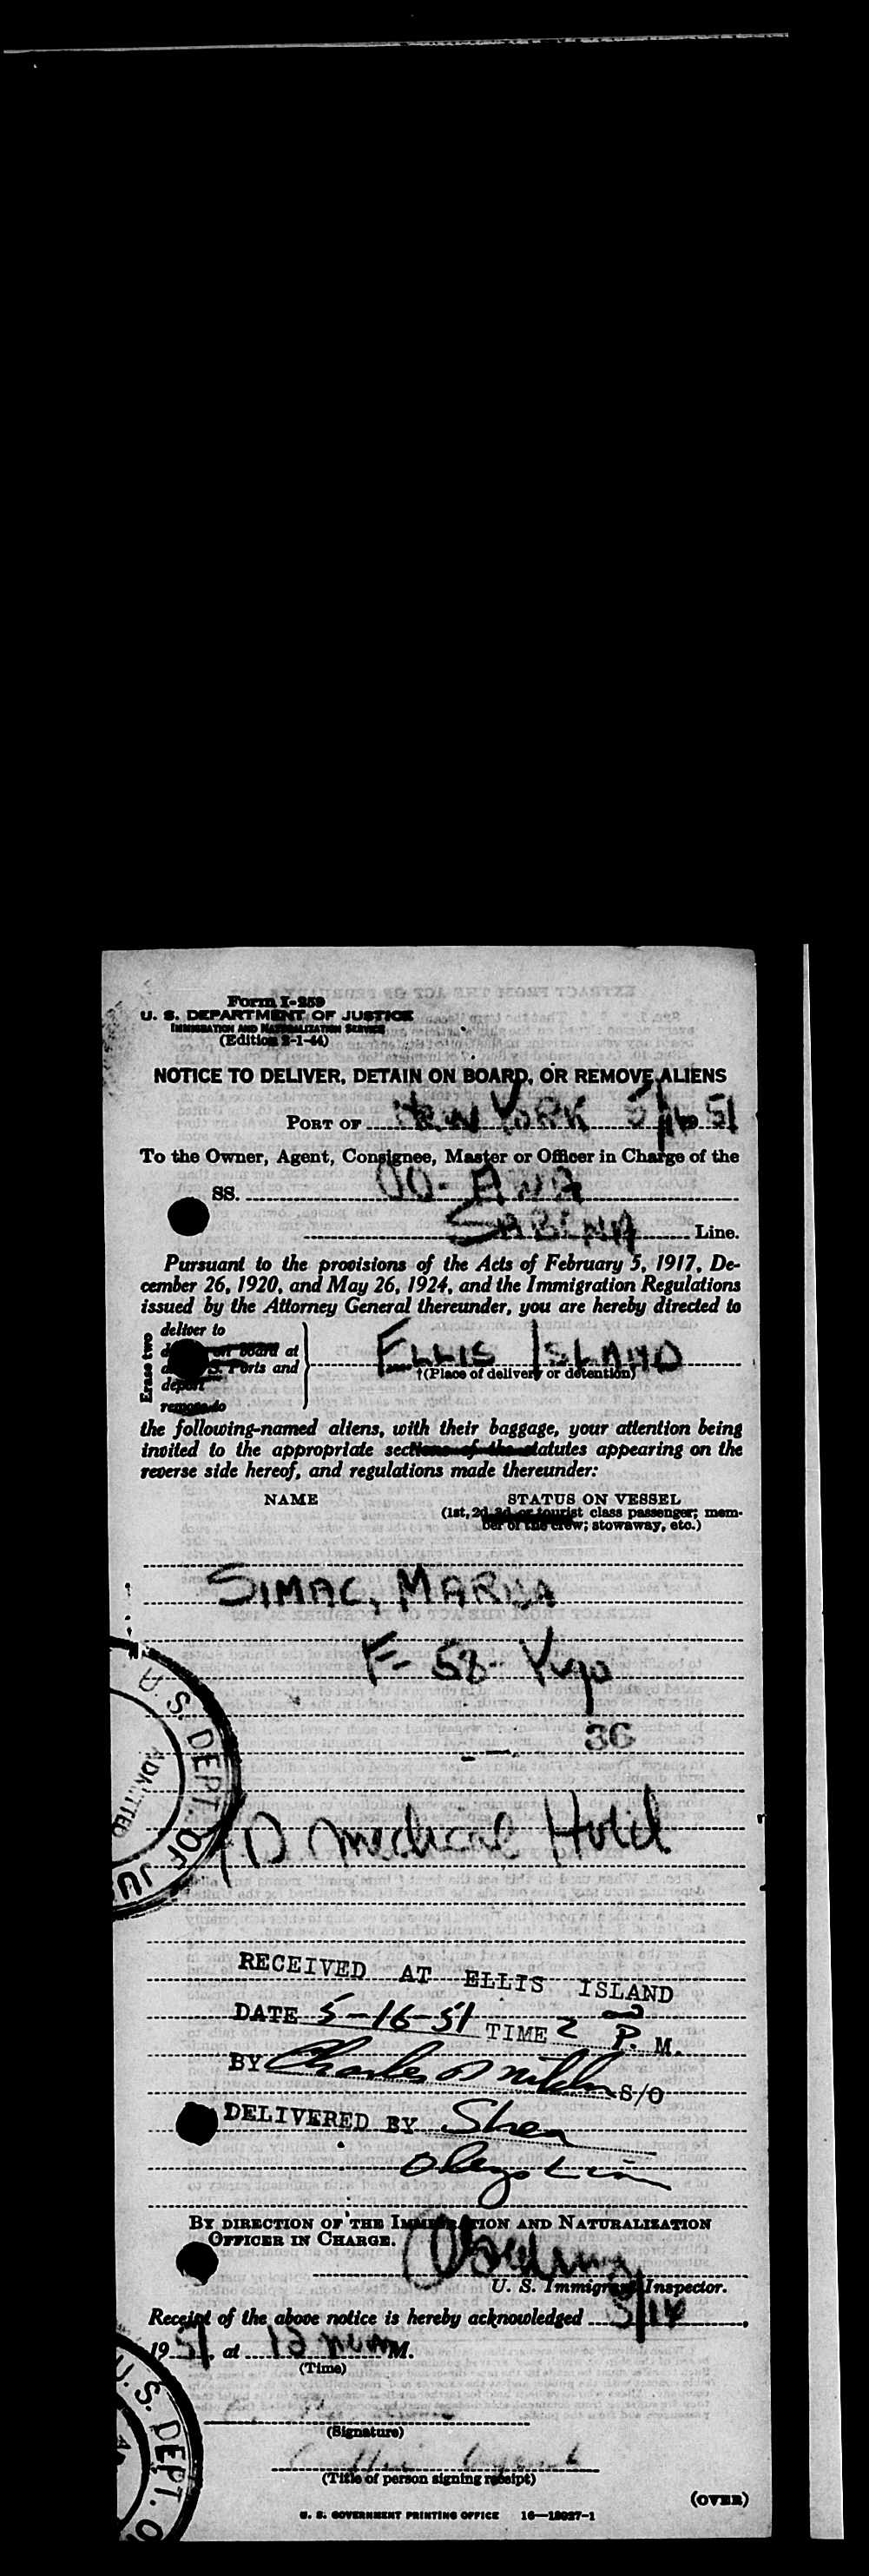 Form I-259
U. S. DEPARTMENT OF JUSTICE
IMMIGRATION AND NATURALIZATION SERVICE
(Edition 2-1-44)
NOTICE TO DELIVER, DETAIN ON BOARD, OR REMOVE ALIENS
PORT OF NEW YORK 5/16 51
To the Owner, Agent, Consignee, Master or Officer in Charge of the
SS. OO-
SABENA Line.
Pursuant to the provisions of the Acts of February 5, 1917, De-
cember 26, 1920, and May 26, 1924, and the Immigration Regulations
issued by the Attorney General thereunder, you are hereby directed to
Erase two
deliver to
on board at
U. S. Ports and
deport
remove to
ELLIS ISLAND
(Place of delivery or detention)
the following-named aliens, with their baggage, your attention being
invited to the appropriate sections of the statutes appearing on the
reverse side hereof, and regulations made thereunder:
NAME STATUS ON VESSEL
(1st, 2d, 3d, or tourist class passenger; mem-
ber of the crew; stowaway, etc.)
SIMAC, MARIJA
F- 58- Yugo
36
U. S. DEPT. OF JUS
ADMITTED
Medical Hold
RECEIVED AT ELLIS ISLAND
DATE 5-16-51 TIME 2 P. M.
BY Charles S/O
DELIVERED BY Shea
BY DIRECTION OF THE IMMIGRATION AND NATURALIZATION
OFFICER IN CHARGE.
U. S. Immigrant Inspector.
Receipt of the above notice is hereby acknowledged 5/16,
19 51, at 12 noon M.
(Time)
(Signature)
(Title of person signing receipt)
U. S. DEPT. O
(OVER)
U. S. GOVERNMENT PRINTING OFFICE 16—18027-1